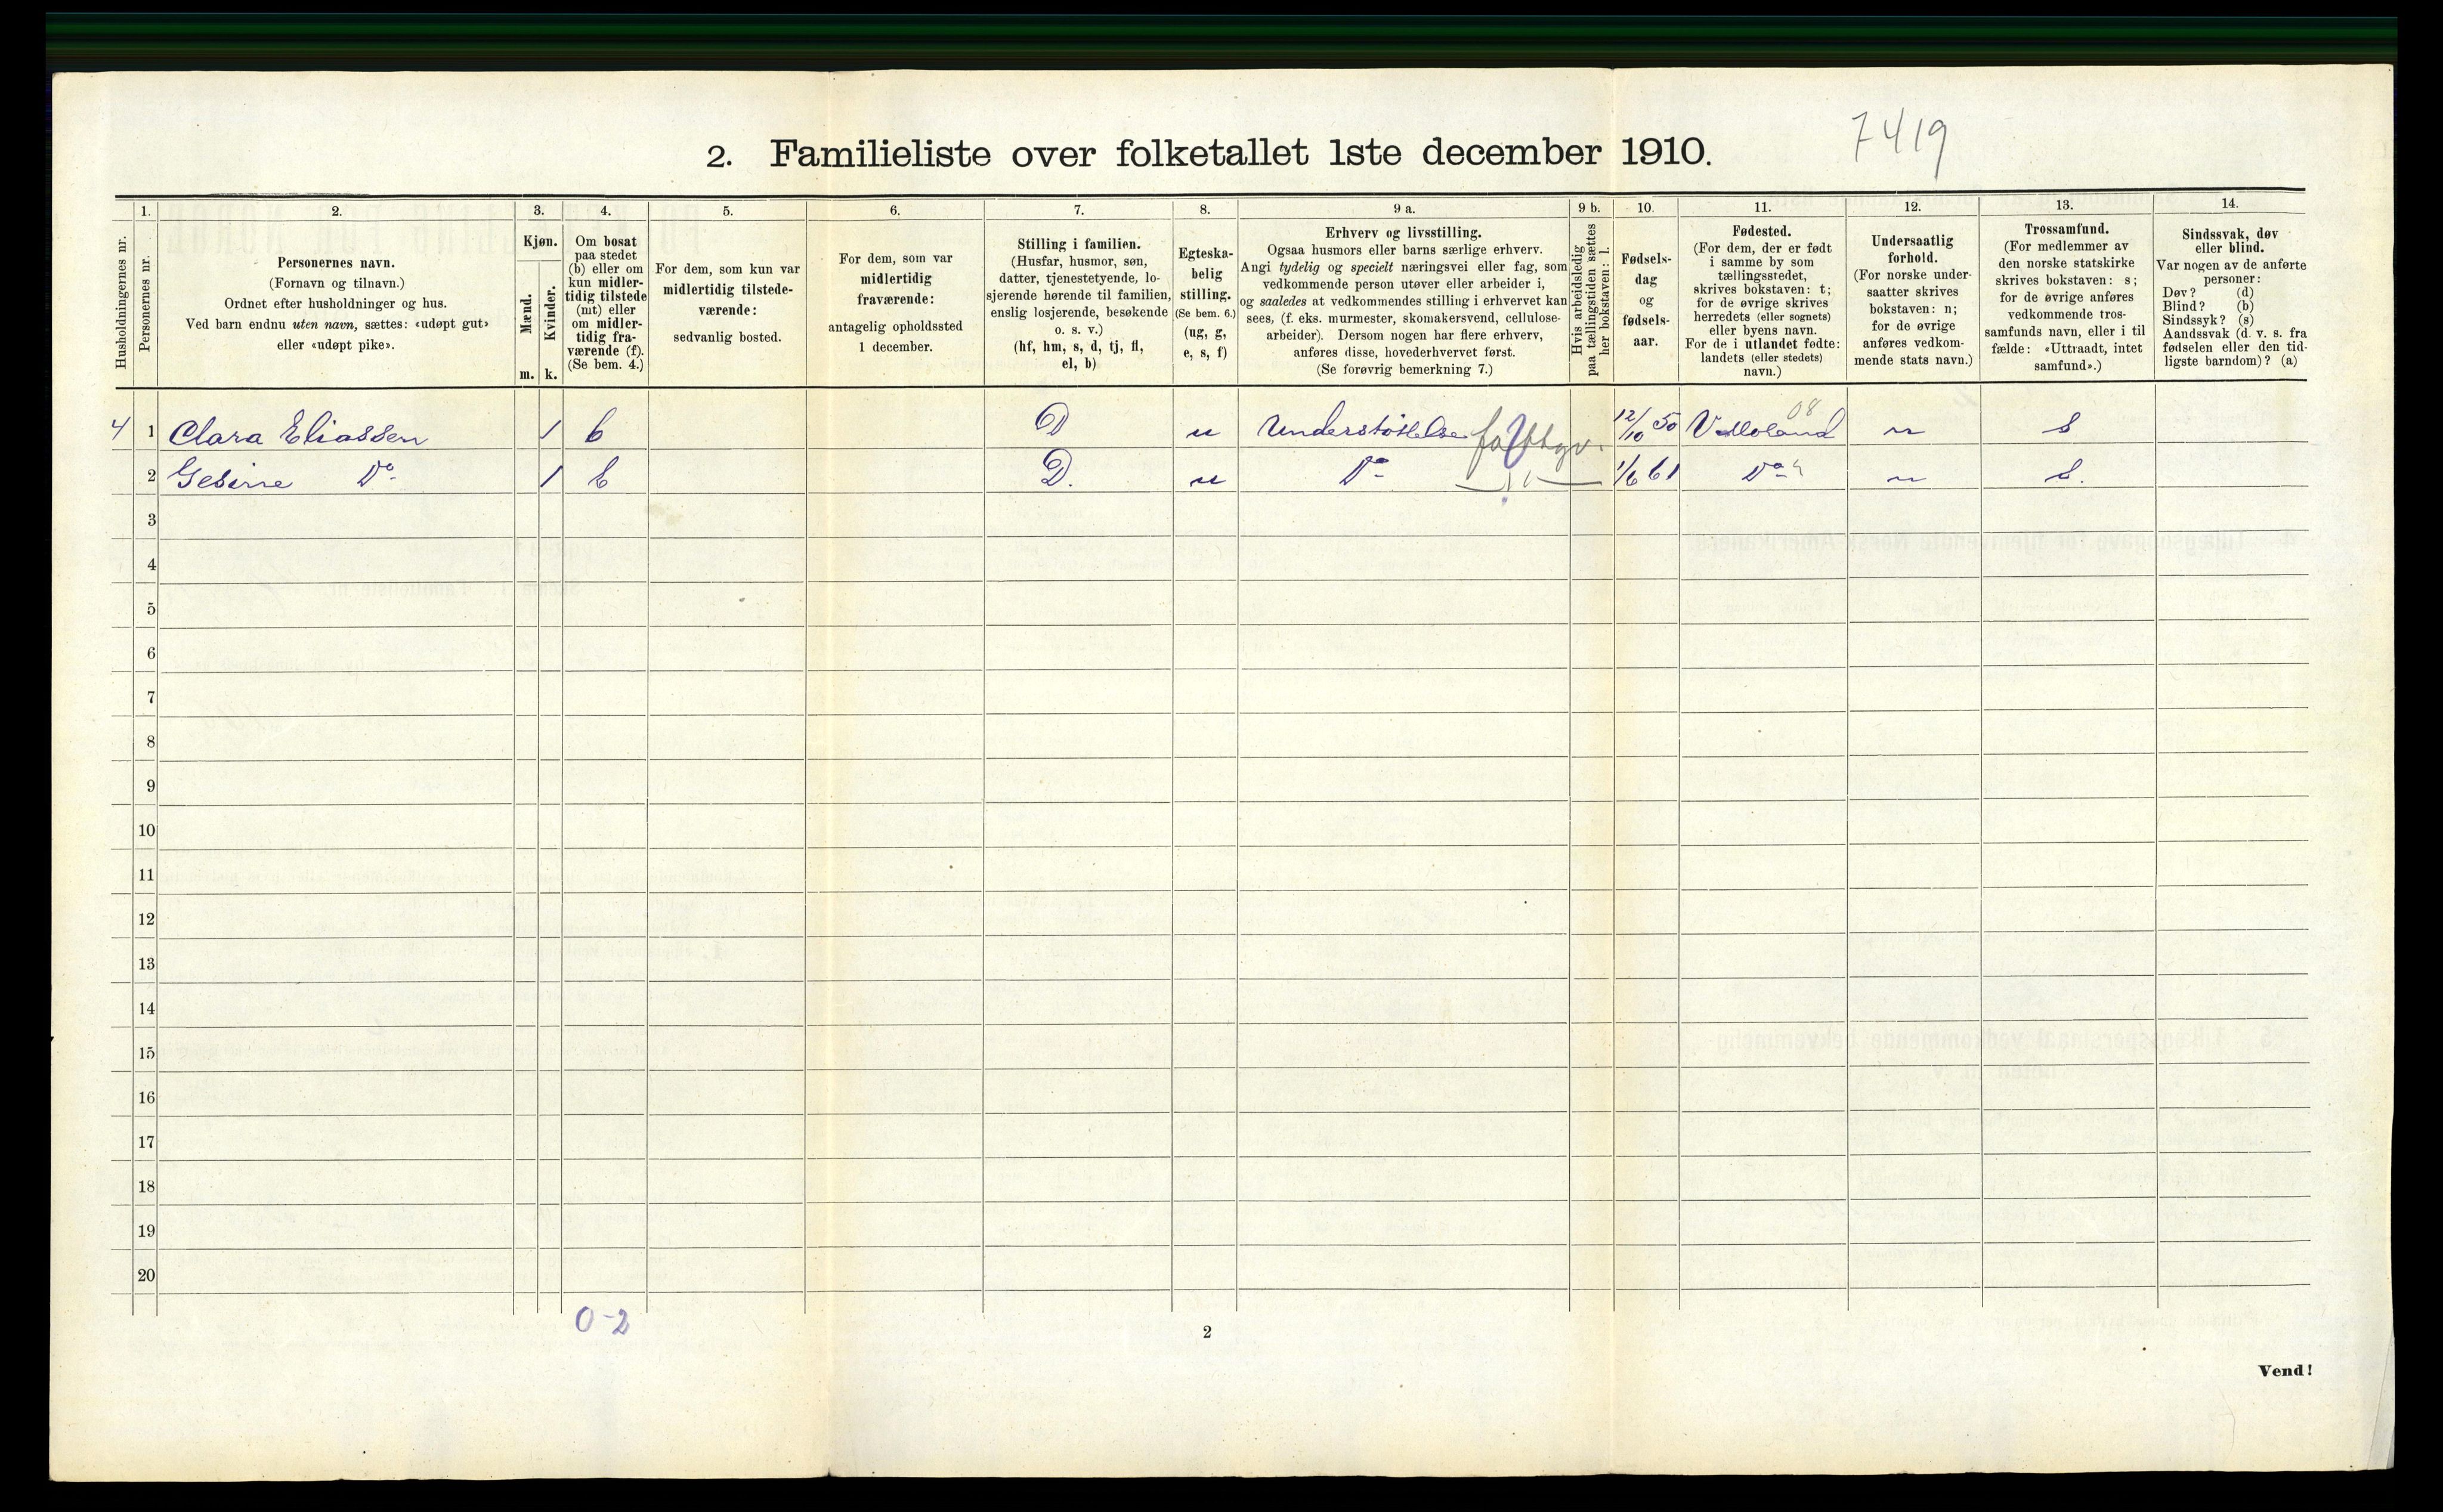 7419
2. Familieliste over folketallet 1ste december 1910.
Husholdningernes nr.
1.
Personernes nr.
2.
Personernes navn.
(Fornavn og tilnavn.)
Ordnet efter husholdninger og hus.
Ved barn endnu uten navn, sættes: «udøpt gut»
eller «udøpt pike».
3.
Kjøn.
Mænd.
Kvinder.
m. k.
4.
Om bosat
paa stedet
(b) eller om
kun midler-
tidig tilstede
(mt) eller
om midler-
tidig fra-
værende (f).
(Se bem. 4.)
5.
For dem, som kun var
midlertidig tilstede-
værende:
sedvanlig bosted.
6.
For dem, som var
midlertidig
fraværende:
antagelig opholdssted
1 december.
7.
Stilling i familien.
(Husfar, husmor, søn,
datter, tjenestetyende, lo-
sjerende hørende til familien,
enslig losjerende, besøkende
o. s. v.)
(hf, hm, s, d, tj, fl,
el, b)
8.
Egteska-
belig
stilling.
(Se bem. 6.)
(ug, g,
e, s, f)
9 a.
Erhverv og livsstilling.
Ogsaa husmors eller barns særlige erhverv.
Angi tydelig og specielt næringsvei eller fag, som
vedkommende person utøver eller arbeider i,
og saaledes at vedkommendes stilling i erhvervet kan
sees, (f. eks. murmester, skomakersvend, cellulose-
arbeider). Dersom nogen har flere erhverv,
anføres disse, hovederhvervet først.
(Se forøvrig bemerkning 7.)
9 b.
Hvis arbeidsledig
paa tællingstiden sættes
her bokstaven: l.
10.
Fødsels-
dag
og
fødsels-
aar.
11.
Fødested.
(For dem, der er født
i samme by som
tællingsstedet,
skrives bokstaven: t;
for de øvrige skrives
herredets (eller sognets)
eller byens navn.
For de i utlandet fødte:
landets (eller stedets)
navn.)
12.
Undersaatlig
forhold.
(For norske under-
saatter skrives
bokstaven: n;
for de øvrige
anføres vedkom-
mende stats navn.)
13.
Trossamfund.
(For medlemmer av
den norske statskirke
skrives bokstaven: s;
for de øvrige anføres
vedkommende tros-
samfunds navn, eller i til
fælde: «Uttraadt, intet
samfund».)
14.
Sindssvak, døv
eller blind.
Var nogen av de anførte
personer:
Døv? (d)
Blind? (b)
Sindssyk? (s)
Aandssvak (d. v. s. fra
fødselen eller den tid-
ligste barndom)? (a)
4 1 Clara Eliassen 1 b D u Understøttelse fattigv. 12/10 50 08 n s
2 Gesine Do 1 b D. u Do 1/6 61 Do n s.
3
4
5
6
7
8
9
10
11
12
13
14
15
16
17
18
19
20
0-2
2
Vend!